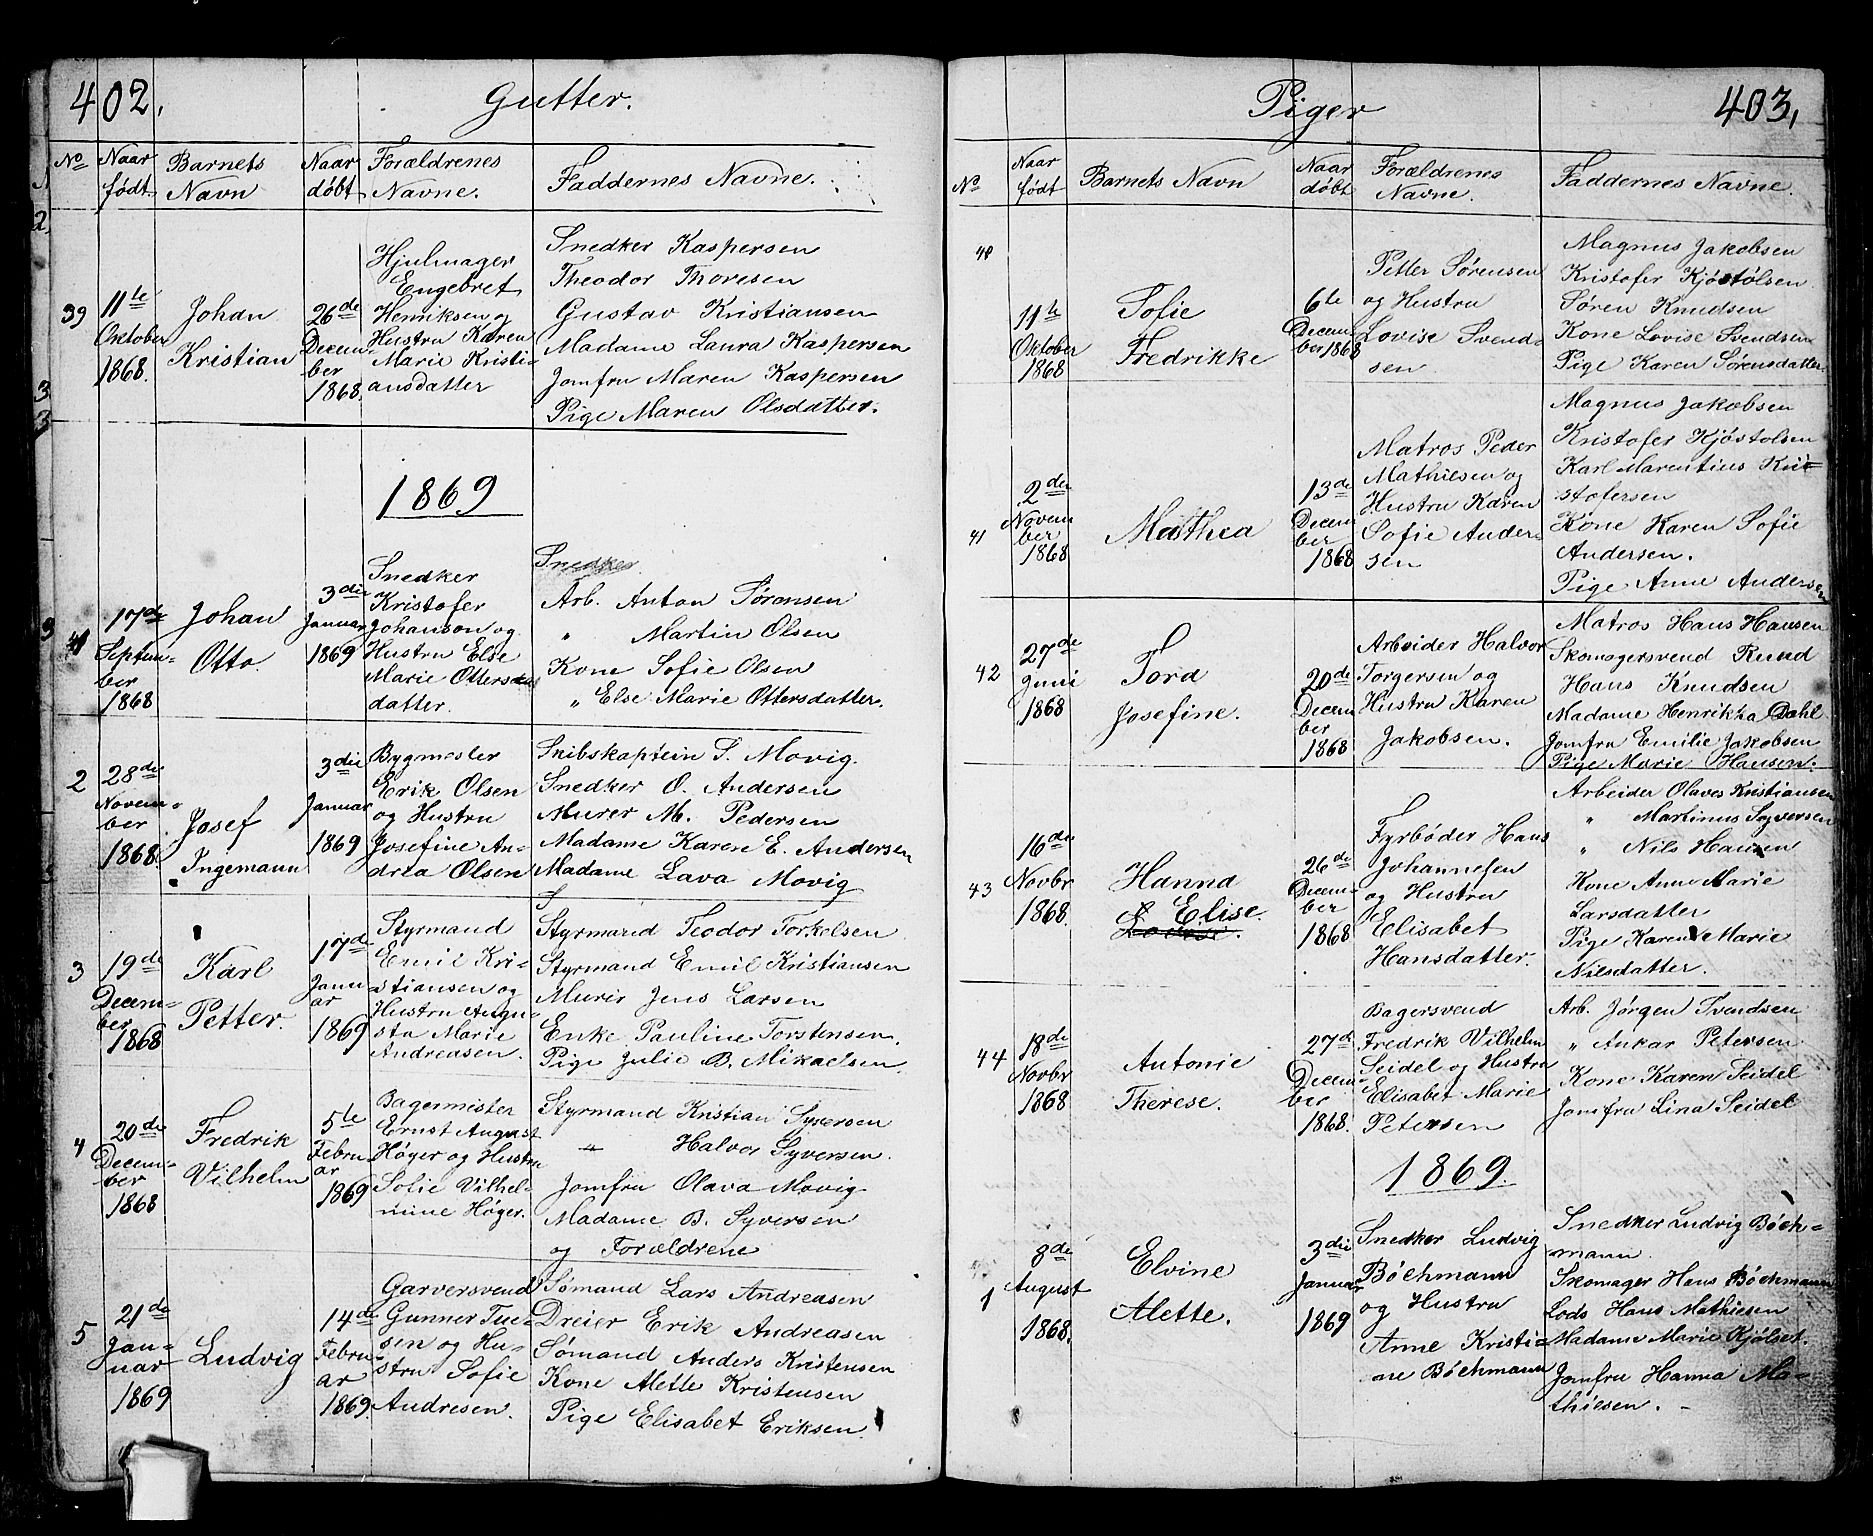 402.
Gutter.
No
Naar født
Barnets Navn
Naar døbt
Forældrenes Navne.
Faddernes Navne.
39
11te Oktober 1868.
Johan Kristian
26de December 1868.
Hjulmager
Engebret
Henriksen og
Hustru Karen
Marie Kristi-
ansdatter
Snedker Kaspersen
Theodor Thoresen
Gustav Kristiansen
Madame Laura Kaspersen
Jomfru Maren Kaspersen
Pige Maren Olsdatter.
1869
17de Septem-
ber
1868
Johan
Otto.
3die
Januar
1869
Snedker
Kristofer
Johanson og
Hustru Else
Marie Otters-
datter.
Snedker
Arb. Anton Sørensen
" Martin Olsen
Kone Sofie Olsen
" Else Marie Ottersdatter.
2
28de
Novem-
ber
1868.
Josef
Ingemann
3die
Januar
1869
Bygmester
Erik Olsen
og Hustru
Josefine An-
drea Olsen
Skibskaptein S. Movig.
Snedker O. Andersen
Murer M. Pedersen
Madame Karen E. Andersen
Madame Lava Movig
3
19de
Decem-
ber
1868
Karl
Petter.
17de
Janu-
ar
1869
Styrmand
Emil Kri-
stiansen og
Hustru Augu-
sta Marie
Andreasen.
Styrmand Teodor Torkelsen
Styrmand Emil Kristiansen
Murer Jens Larsen
Enke Pauline Torstensen.
Pige Julie B. Mikaelsen.
4
20de
Decem-
ber
1868
Fredrik
Vilhelm
5te
Febru-
ar
1869
Bagermester
Ernst August
Høger og Hustru
Sofie Vilhel-
mine Høger.
Styrmand Kristian Syversen
" Halvor Syversen.
Jomfru Olava Movig
Madame B. Syversen
og Forældrene
5
21de
Jan-
uar
1869
Ludvig
14de
Febru-
ar
1869.
Garversvend
Gunner Tue-
sen og Hu-
stru Sofie
Andresen.
Sømand Lars Andreasen
Dreier Erik Andreasen
Sømand Anders Kristensen
Kone Alette Kristensen
Pige Elisabet Eriksen.
Piger
403,
No
Naar født
Barnets Navn
Naar døbt
Forældrenes Navne.
Faddernes Navne.
11te
Oktober
1868
Sofie
Fredrikke
6te
Decem-
ber 1868
Petter Sørensen
og Hustru
Lovise Svend-
sen.
Magnus Jakobsen
Kristofer Kjøstølsen
Søren Knudsen
Kone Lovise Svendsen
Pige Karen Sørensdatter
41
2den
Novem
ber
1868
Mathea
13de
Decem
ber
1868
Matros Peder
Mathiesen og
Hustru Karen
Sofie Ander-
sen
Magnus Jakobsen
Kristofer Kjøstolsen
Karl Marentius Kri-
stofersen
Kone Karen Sofie
Andersen.
Pige Anne Andersen
42
27de
Juni
1868
Tord
Josefine.
20de
Decem
ber
1868
Arbeider Halvor
Torgersen og
Hustru Karen
Jakobsen.
Matros Hans Hansen
Skomagersvend Rund
Hans Knudsen
Madame Henrikka Dahl
Jomfru Emilie Jakobsen
Pige Marie Hansen.
43
16de
Novbr
1868.
Hanna
Elise.
26de
Decem-
ber
1868
Fyrbøder Hans
Johannesen
og Hustru
Elisabet
Hansdatter.
Arbeider Olaves Kristiansen
" Martinus Syversen
" Nils Hansen
Kone Anne Marie
Larsdatter
Pige Karen Marie
Nilsdatter.
44
18de
Novbr
1868
Antonie
Therese.
27de
Decem-
ber
1868.
Bagersvend
Fredrik Vilhelm
Seidel og Hustru
Elisabet Marie
Petersen
Arb. Jørgen Svendsen
" Ankar Petersen
Kone Karen Seidel
Jomfru Lina Seidel
1869.
1
8de
August
1868.
Elvine
Alette.
3die
Januar
1869
Snedker Ludvig
Böchmann
og Hustru
Anne Kristi-
ne Böchmann
Snedker Ludvig Böch-
mann.
Skomager Hans Böchmann
Lods Hans Mathiesen
Madame Marie Kjølset.
Jomfru Hanna Ma-
thiesen. -